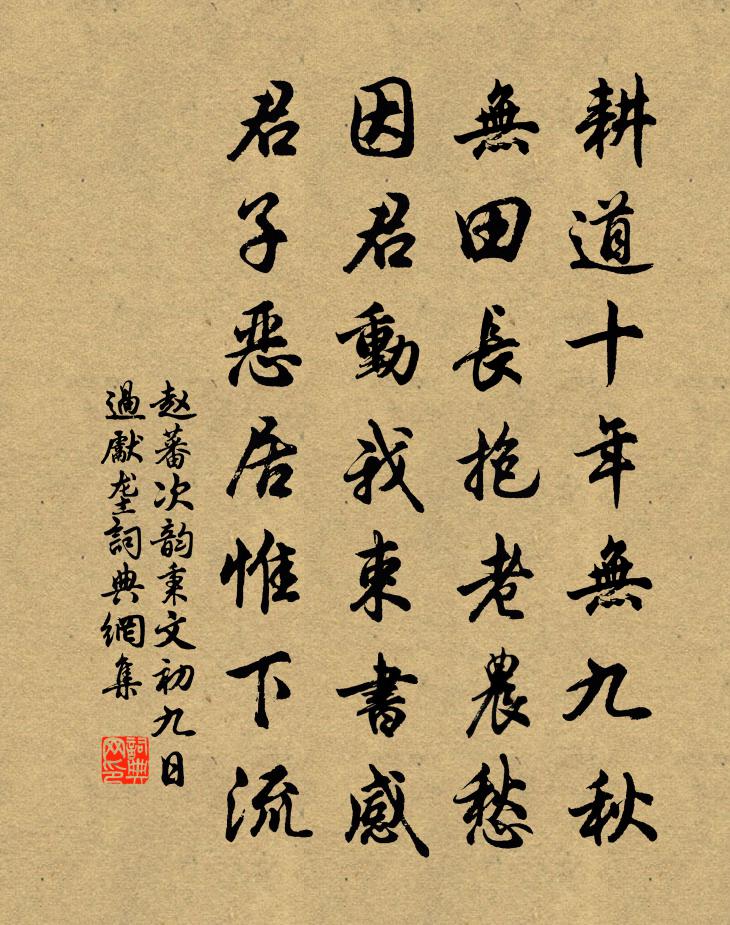 耕道十年無九秋
無田長抱老農愁
因君動我束書感
君子惡居惟下流
赵蕃次韵秉文初九日
過獻垄詞典網集
詞典網印